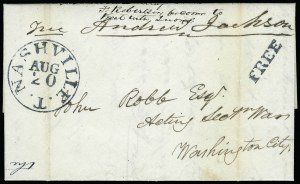 Free Andrew Jackson
NASHVILLE T.
AUG
20
FREE
John Robb Esqr.
Acting Secty War
Washington City